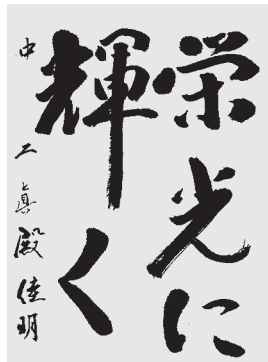 栄光に
輝く
中二 真殿佳明